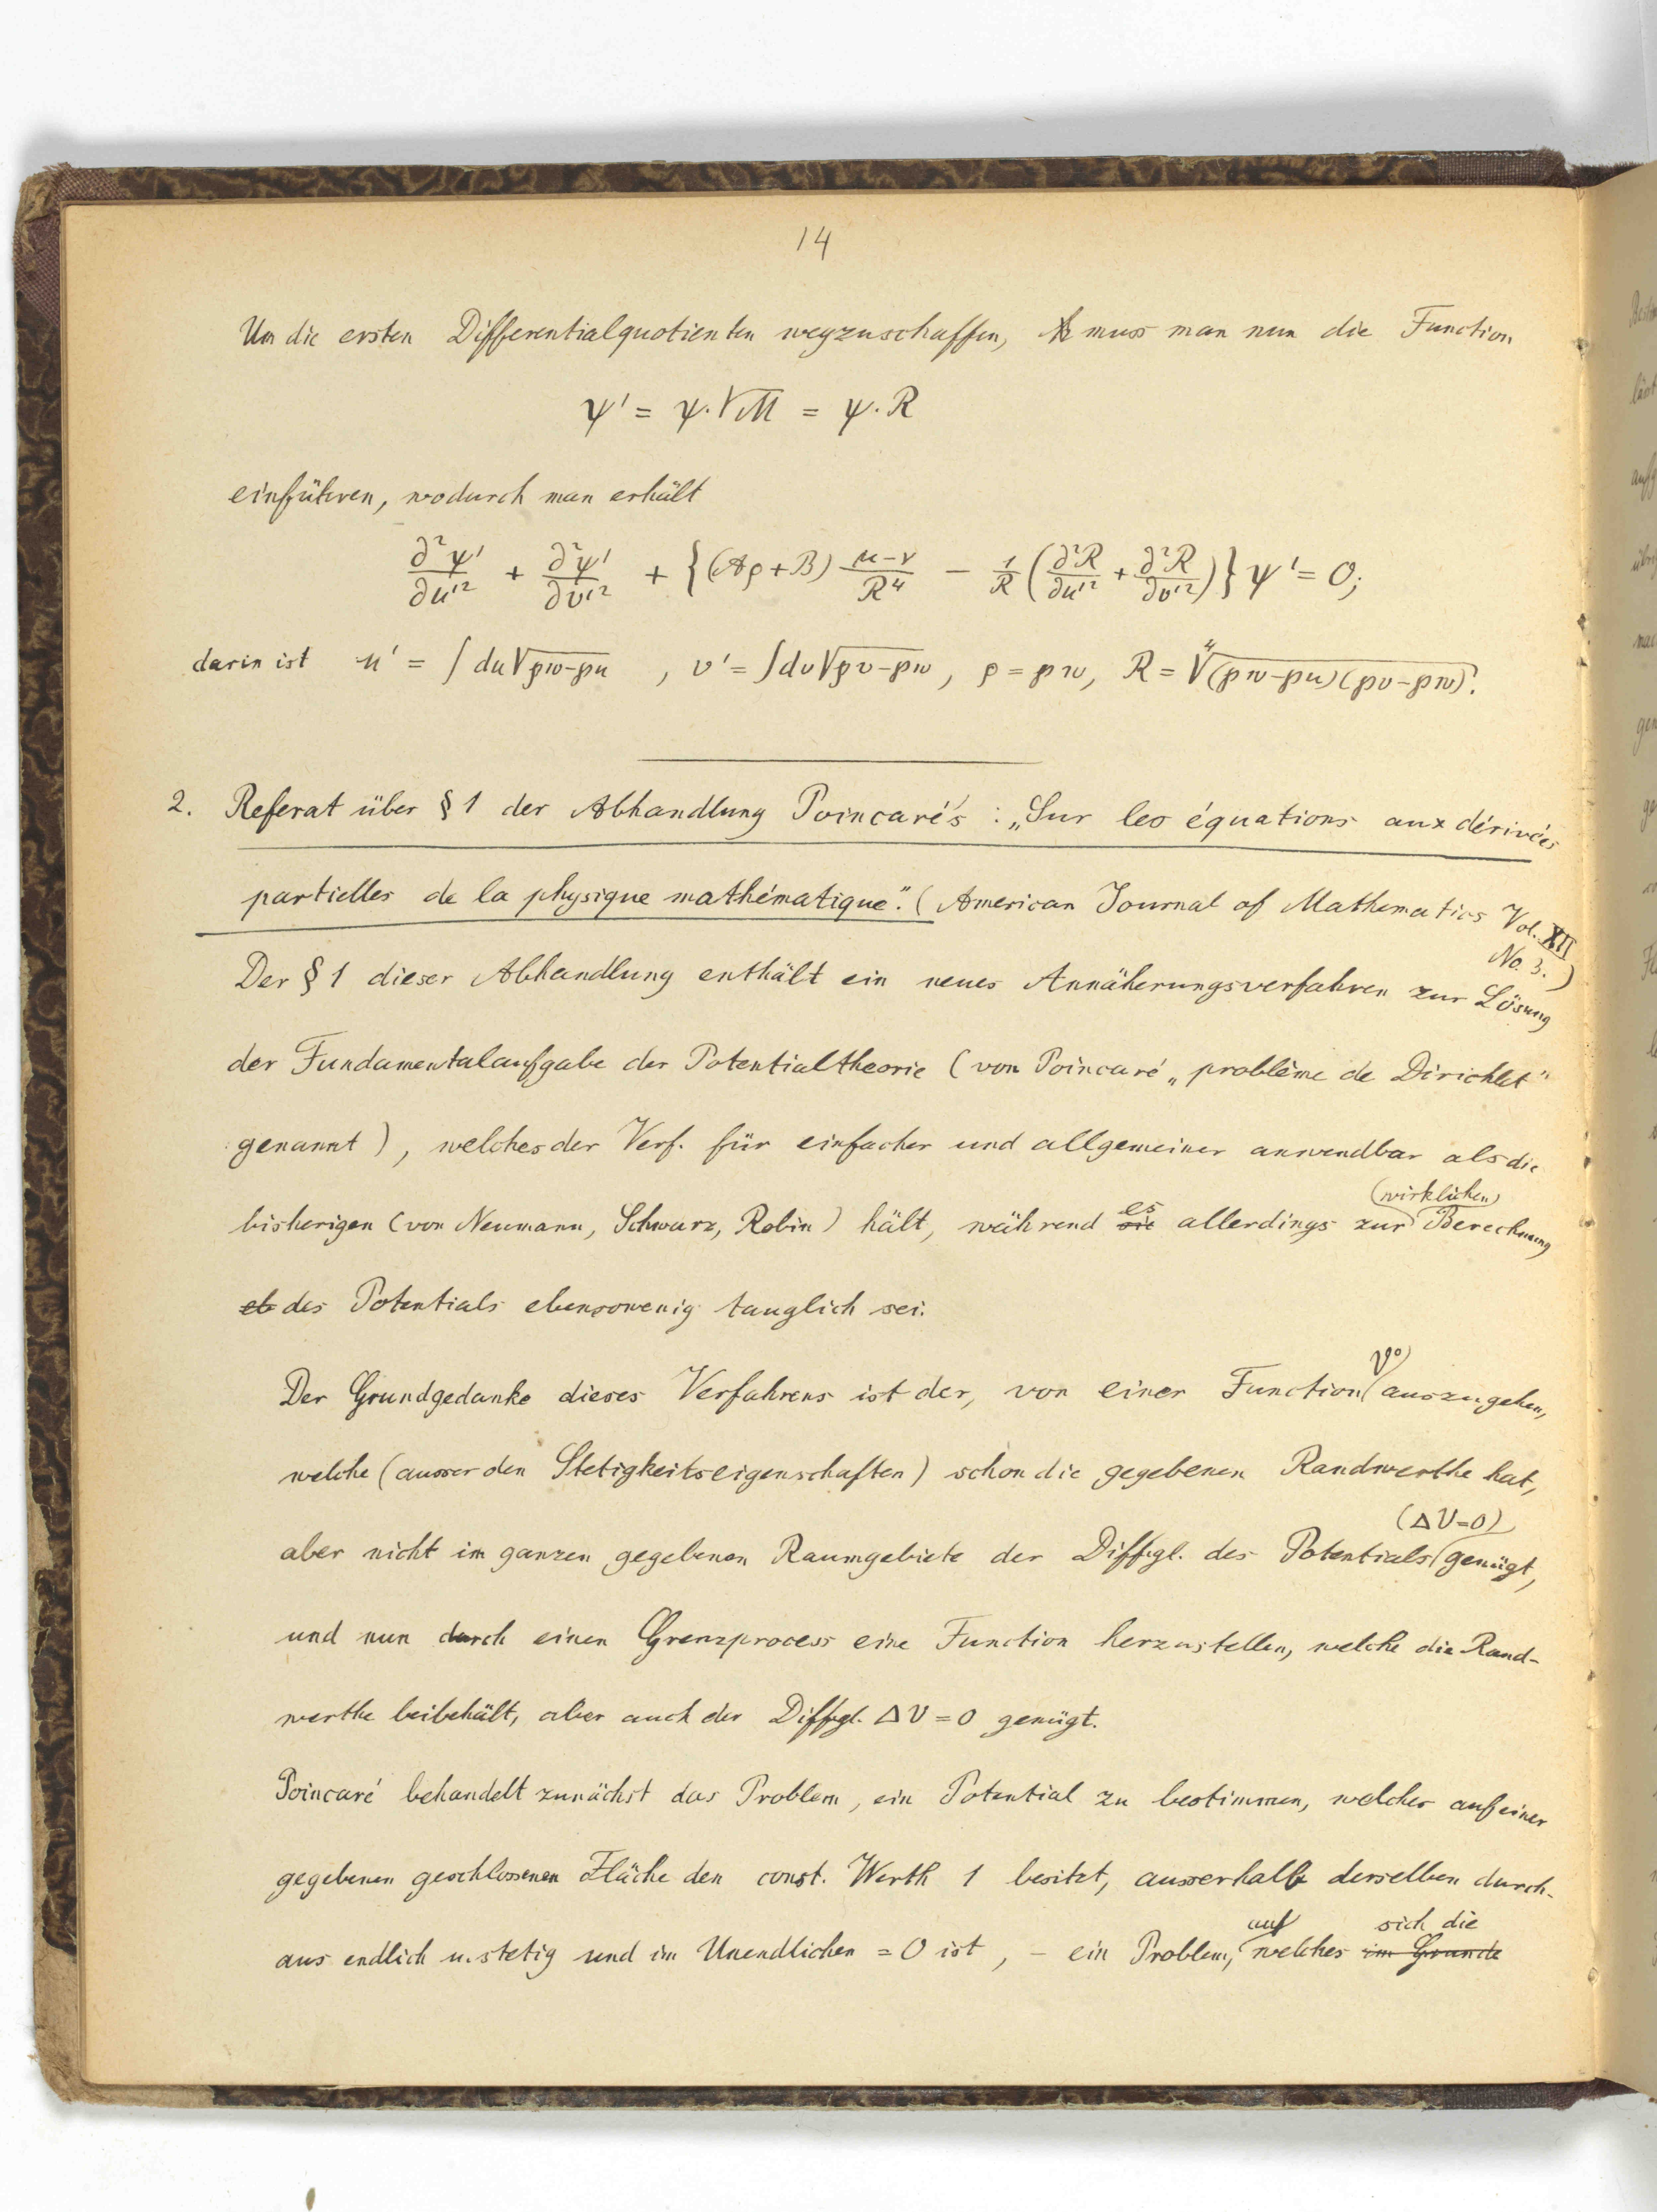 14
Um die ersten Differentialquotienten wegzuschaffen, muss man nun die Function
ψ' = ψ.√M = ψ.R
einführen, wodurch man erhält
∂²ψ'/∂u'² + ∂²ψ'/∂v'² + {(Aρ+B) (μ-ν)/R⁴ - 1/R (∂²R/∂u'² + ∂²R/∂v'²)} ψ' = 0;
darin ist u' = ∫du√(pw-pu) , v' = ∫dv√(pv-pw), ρ = pw, R = ⁴√((pw-pu)(pv-pw)).
2. Referat über § 1 der Abhandlung Poincaré's : „Sur les équations aux dérivées
partielles de la physique mathématique". (American Journal of Mathematics Vol. XII
No. 3.)
Der § 1 dieser Abhandlung enthält ein neues Annäherungsverfahren zur Lösung
der Fundamentalaufgabe der Potentialtheorie (von Poincaré „problème de Dirichlet"
genannt), welches der Verf. für einfacher und allgemeiner anwendbar als die
bisherigen (von Neumann, Schwarz, Robin) hält, während sie es allerdings zur (wirklichen) Berechnung
eb des Potentials ebensowenig tauglich sei.
Der Grundgedanke dieses Verfahrens ist der, von einer Function V⁰ auszugehen,
welche (ausser den Stetigkeitseigenschaften) schon die gegebenen Randwerthe hat,
aber nicht im ganzen gegebenen Raumgebiete der Diffgl. des Potentials (ΔV=0) genügt,
und nun durch einen Grenzprocess eine Function herzustellen, welche die Rand-
werthe beibehält, aber auch der Diffgl. ΔV = 0 genügt.
Poincaré behandelt zunächst das Problem, ein Potential zu bestimmen, welches auf einer
gegebenen geschlossenen Fläche den const. Werth 1 besitzt, ausserhalb derselben durch-
aus endlich u. stetig und im Unendlichen = 0 ist, – ein Problem, auf welches im Grunde sich die